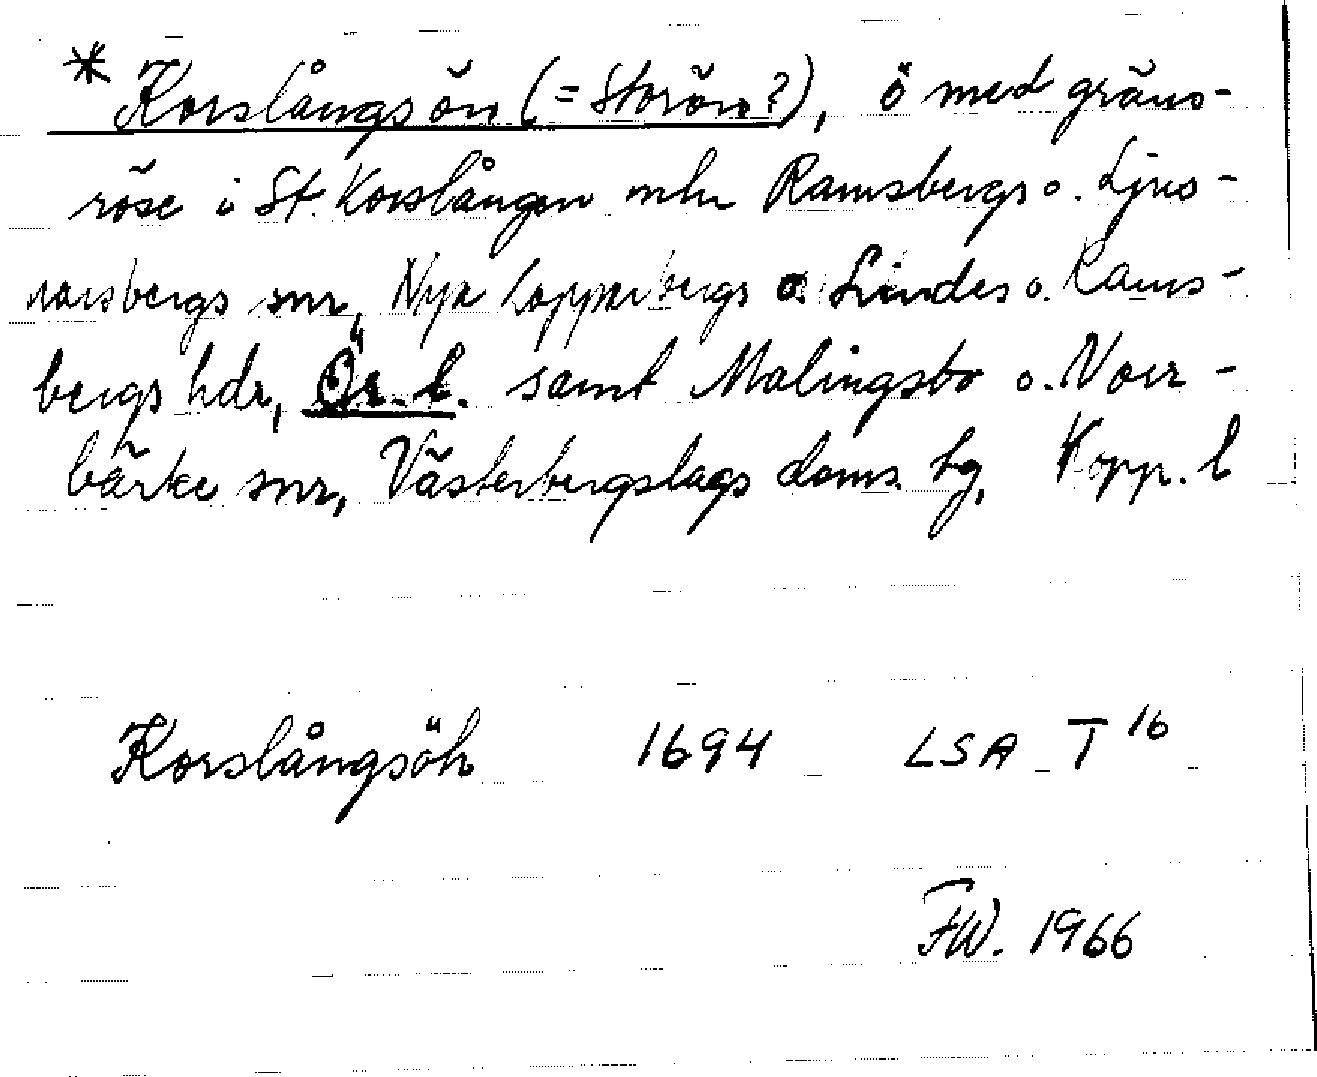 * Korslångsön (= Storön?), ö med gräns-
röse i St. Korslången mln Ramsbergs o. Ljus-
narsbergs snr, Nya Kopparbergs o Lindes o. Rams-
bergs hdr, Ör. l. samt Malingsbo o. Norr-
bärke snr, Västerbergslags doms. tg, Kopp. l
Korslångsöh 1694 LSA T 16
FW. 1966